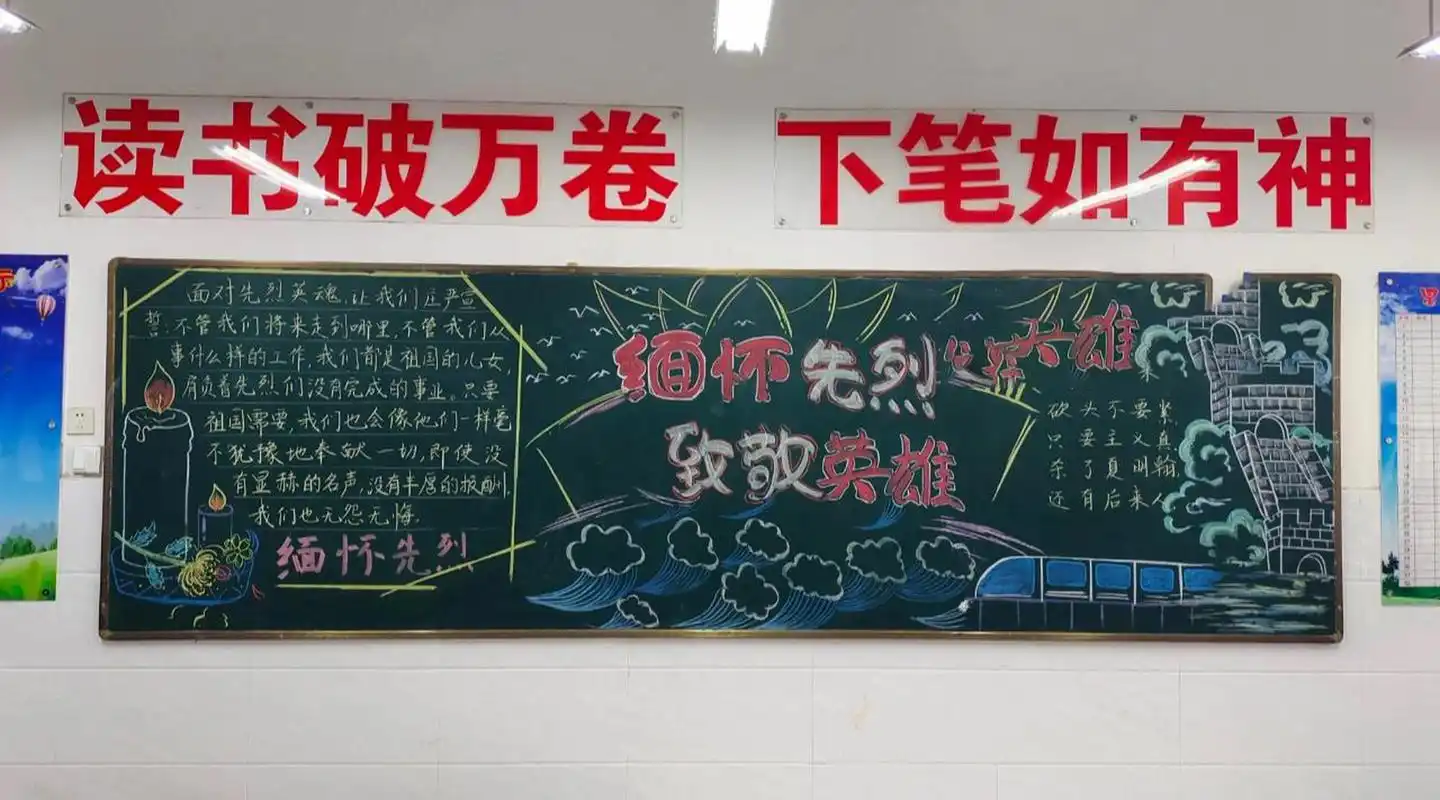 读书破万卷 下笔如有神
面对先烈英魂,让我们庄严宣
誓:不管我们将来走到哪里,不管我们从
事什么样的工作,我们都是祖国的儿女,
肩负着先烈们没有完成的事业。只要
祖国需要,我们也会像他们一样毫
不犹豫地奉献一切,即使没
有显赫的名声,没有丰厚的报酬,
我们也无怨无悔。
缅怀先烈
缅怀先烈
英雄
致敬英雄
砍头不要紧,
只要主义真。
杀了夏明翰,
还有后来人